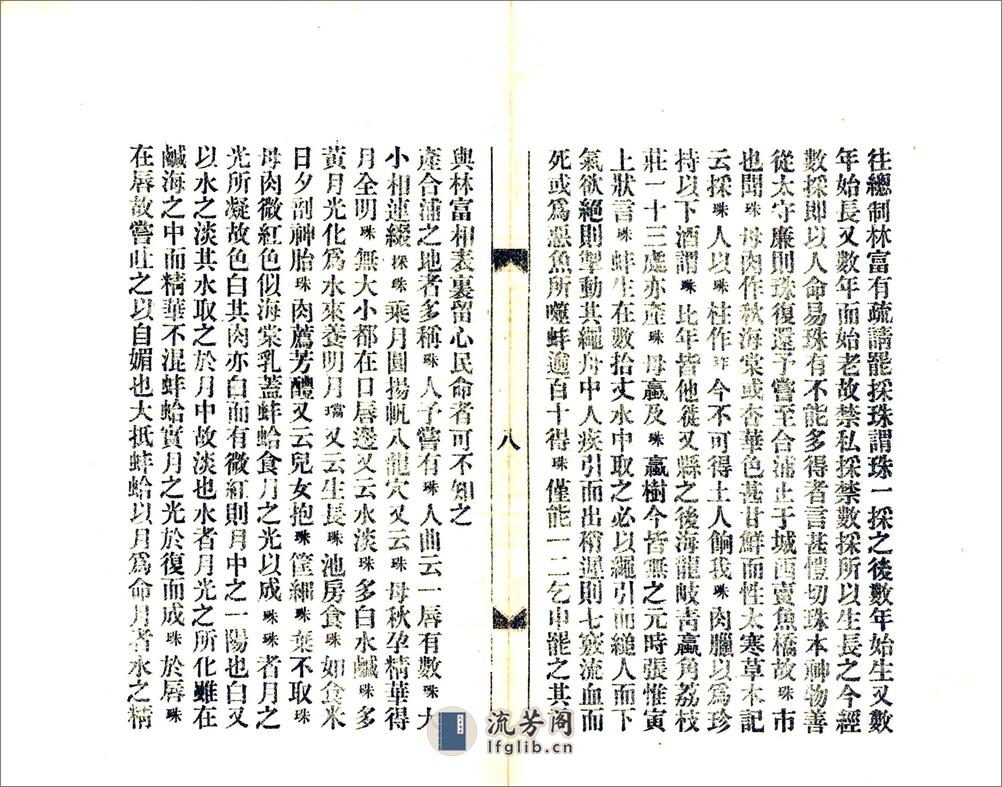 往總制林富有疏請罷採珠謂珠一採之後數年始生又數
年始長又數年而始老故禁私採禁數採所以生長之今經
數採即以人命易珠有不能多得者言甚愷切珠本神物善
從太守廉則珠復還予嘗至合浦止于城西賣魚橋故珠市
也聞珠母肉作秋海棠或杏華色甚甘鮮而性太寒草木記
云採珠人以珠柱作鮓今不可得土人餉我珠肉臘以為珍
持以下酒謂珠比年皆他徙又縣之後海龍岐青蠃角荔枝
莊一十三處亦產珠母蠃及珠蠃樹今皆無之元時張惟寅
上狀言珠蚌生在數拾丈水中取之必以繩引而縋人而下
氣欲絕則掣動其繩舟中人疾引而出稍遲則七竅流血而
死或為惡魚所噬蚌逾百十得珠僅能一二乞申罷之其言
八
與林富相表裏留心民命者可不知之
產合浦之地者多稱珠人予嘗有珠人曲云一唇有數珠大
小相連綴採珠乘月圓揚帆八龍穴又云珠母秋孕精華得
月全明珠無大小都在口唇邊又云水淡珠多白水鹹珠多
黃月光化為水來養明月璫又云生長珠池房食珠如食米
日夕剖神胎珠肉薦芳醴又云兒女抱珠筐細珠棄不取珠
母肉微紅色似海棠乳蓋蚌蛤食月之光以成珠珠者月之
光所凝故色白其肉亦白而有微紅則月中之一陽也白又
以水之淡其水取之於月中故淡也水者月光之所化雖在
鹹海之中而精華不混蚌蛤實月之光於復而成珠於唇珠
在唇故嘗吐之以自媚也大抵蚌蛤以月為命月者水之精
流芳阁
lfglib.cn